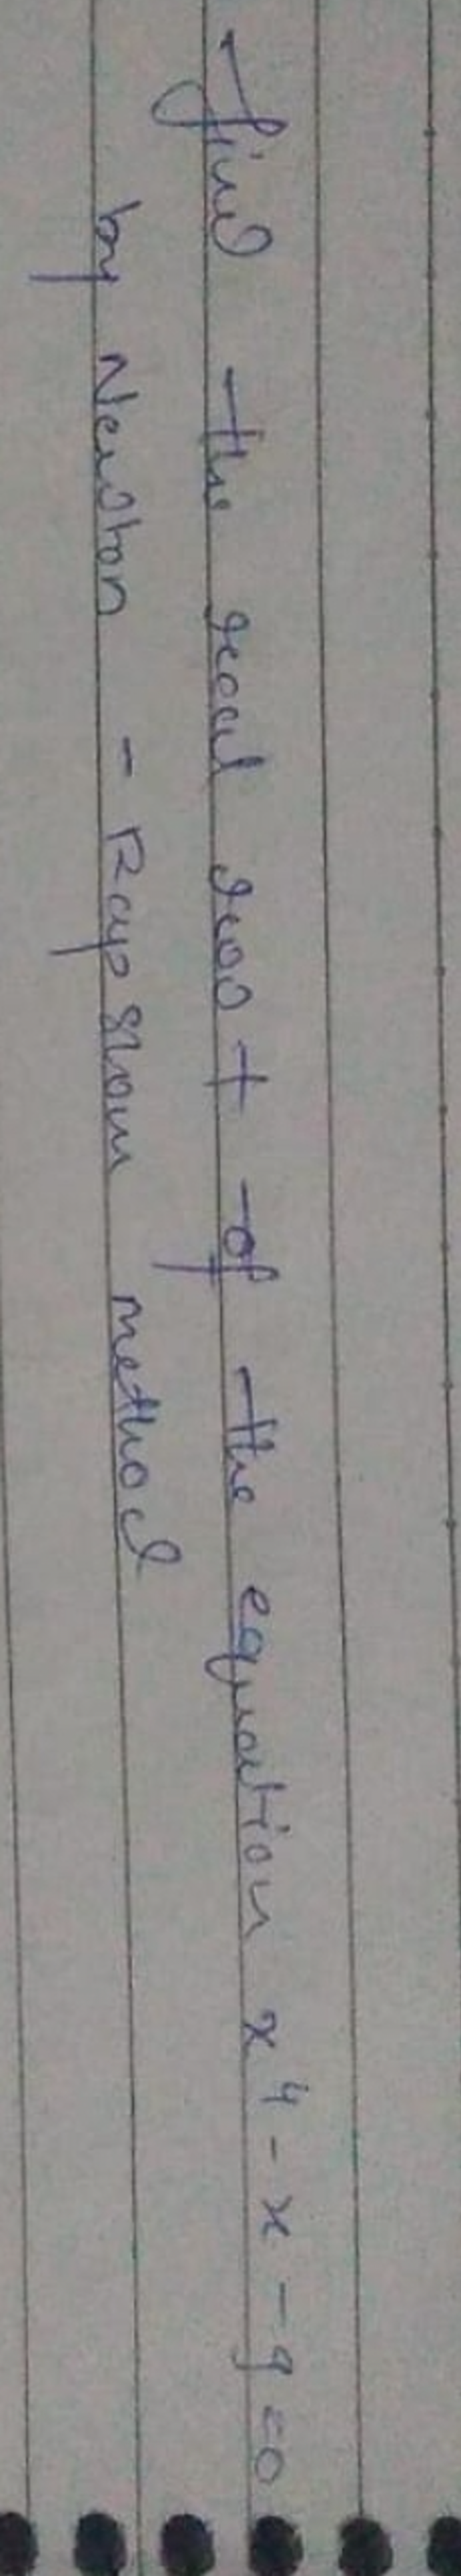 find the real root of the equation x⁴ - x - 9 = 0
by Newton - Rapshon method